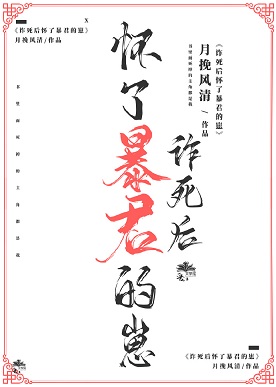 X
《诈死后怀了暴君的崽》
月挽风清/作品
《诈死后怀了暴君的崽》
月挽风清/作品
诈死后
怀了暴君的崽
《诈死后怀了暴君的崽》
月挽风清/作品